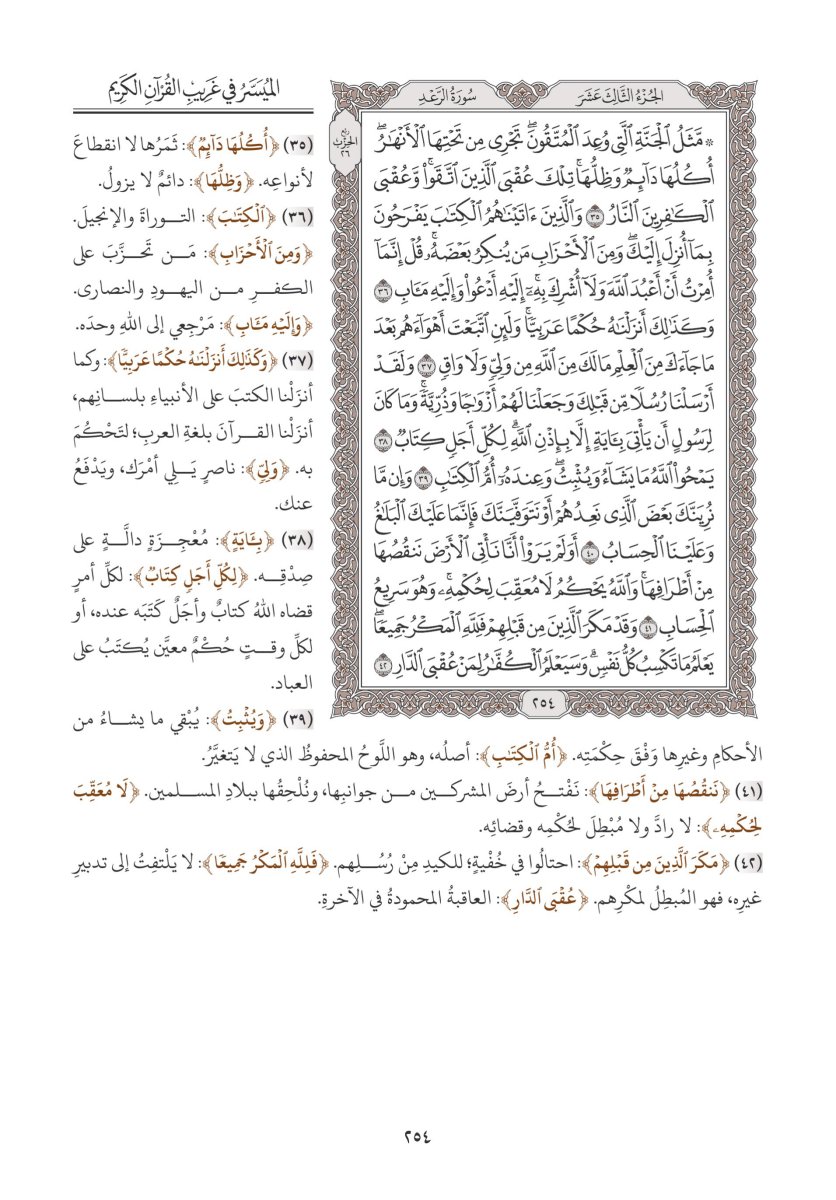 الميُسَّرُ في غَرِيبِ القُرْآنِ الكَرِيم
الجُزْءُ الثَّالِثَ عَشَرَ
سُورَةُ الرَّعْدِ
ربع
الحزب
٢٦
۞ مَّثَلُ ٱلْجَنَّةِ ٱلَّتِى وُعِدَ ٱلْمُتَّقُونَ ۖ تَجْرِى مِن تَحْتِهَا ٱلْأَنْهَـٰرُ ۖ
أُكُلُهَا دَآئِمٌ وَظِلُّهَا ۚ تِلْكَ عُقْبَى ٱلَّذِينَ ٱتَّقَوا۟ ۖ وَّعُقْبَى
ٱلْكَـٰفِرِينَ ٱلنَّارُ ٣٥ وَٱلَّذِينَ ءَاتَيْنَـٰهُمُ ٱلْكِتَـٰبَ يَفْرَحُونَ
بِمَآ أُنزِلَ إِلَيْكَ ۖ وَمِنَ ٱلْأَحْزَابِ مَن يُنكِرُ بَعْضَهُۥ ۚ قُلْ إِنَّمَآ
أُمِرْتُ أَنْ أَعْبُدَ ٱللَّهَ وَلَآ أُشْرِكَ بِهِۦٓ ۚ إِلَيْهِ أَدْعُوا۟ وَإِلَيْهِ مَـَٔابِ ٣٦
وَكَذَٰلِكَ أَنزَلْنَـٰهُ حُكْمًا عَرَبِيًّا ۚ وَلَئِنِ ٱتَّبَعْتَ أَهْوَآءَهُم بَعْدَ
مَا جَآءَكَ مِنَ ٱلْعِلْمِ مَا لَكَ مِنَ ٱللَّهِ مِن وَلِىٍّ وَلَا وَاقٍ ٣٧ وَلَقَدْ
أَرْسَلْنَا رُسُلًا مِّن قَبْلِكَ وَجَعَلْنَا لَهُمْ أَزْوَٰجًا وَذُرِّيَّةً ۚ وَمَا كَانَ
لِرَسُولٍ أَن يَأْتِىَ بِـَٔايَةٍ إِلَّا بِإِذْنِ ٱللَّهِ ۗ لِكُلِّ أَجَلٍ كِتَابٌ ٣٨
يَمْحُوا۟ ٱللَّهُ مَا يَشَآءُ وَيُثْبِتُ ۖ وَعِندَهُۥٓ أُمُّ ٱلْكِتَـٰبِ ٣٩ وَإِن مَّا
نُرِيَنَّكَ بَعْضَ ٱلَّذِى نَعِدُهُمْ أَوْ نَتَوَفَّيَنَّكَ فَإِنَّمَا عَلَيْكَ ٱلْبَلَـٰغُ
وَعَلَيْنَا ٱلْحِسَابُ ٤٠ أَوَلَمْ يَرَوْا۟ أَنَّا نَأْتِى ٱلْأَرْضَ نَنقُصُهَا
مِنْ أَطْرَافِهَا ۚ وَٱللَّهُ يَحْكُمُ لَا مُعَقِّبَ لِحُكْمِهِۦ ۚ وَهُوَ سَرِيعُ
ٱلْحِسَابِ ٤١ وَقَدْ مَكَرَ ٱلَّذِينَ مِن قَبْلِهِمْ فَلِلَّهِ ٱلْمَكْرُ جَمِيعًا ۖ
يَعْلَمُ مَا تَكْسِبُ كُلُّ نَفْسٍ ۗ وَسَيَعْلَمُ ٱلْكُفَّـٰرُ لِمَنْ عُقْبَى ٱلدَّارِ ٤٢
٢٥٤
(٣٥) ﴿أُكُلُهَا دَآئِمٌ﴾: ثَمَرُها لا انقطاعَ
لأنواعِه. ﴿وَظِلُّهَا﴾: دائمٌ لا يزولُ.
(٣٦) ﴿ٱلْكِتَـٰبَ﴾: التوراةَ والإنجيلَ.
﴿وَمِنَ ٱلْأَحْزَابِ﴾: مَن تَحَزَّبَ على
الكفرِ من اليهودِ والنصارى.
﴿وَإِلَيْهِ مَـَٔابِ﴾: مَرْجِعي إلى اللهِ وحدَه.
(٣٧) ﴿وَكَذَٰلِكَ أَنزَلْنَـٰهُ حُكْمًا عَرَبِيًّا﴾: وكما
أنزَلْنا الكتبَ على الأنبياءِ بلسانِهم،
أنزَلْنا القرآنَ بلغةِ العربِ؛ لتَحْكُمَ
به. ﴿وَلِىٍّ﴾: ناصرٍ يَلِي أمْرَك، ويَدْفَعُ
عنك.
(٣٨) ﴿بِـَٔايَةٍ﴾: مُعْجِزَةٍ دالَّةٍ على
صِدْقِه. ﴿لِكُلِّ أَجَلٍ كِتَابٌ﴾: لكلِّ أمرٍ
قضاه اللهُ كتابٌ وأجَلٌ كَتَبَه عنده، أو
لكلِّ وقتٍ حُكْمٌ معيَّن يُكتَبُ على
العباد.
(٣٩) ﴿وَيُثْبِتُ﴾: يُبْقي ما يشاءُ من
الأحكامِ وغيرِها وَفْقَ حِكْمَتِه. ﴿أُمُّ ٱلْكِتَـٰبِ﴾: أصلُه، وهو اللَّوحُ المحفوظُ الذي لا يَتغيَّرُ.
(٤١) ﴿نَنقُصُهَا مِنْ أَطْرَافِهَا﴾: نَفْتحُ أرضَ المشركين من جوانبِها، ونُلْحِقُها ببلادِ المسلمين. ﴿لَا مُعَقِّبَ
لِحُكْمِهِۦ﴾: لا رادَّ ولا مُبْطِلَ لحُكْمِه وقضائِه.
(٤٢) ﴿مَكَرَ ٱلَّذِينَ مِن قَبْلِهِمْ﴾: احتالُوا في خُفْيةٍ؛ للكيدِ مِنْ رُسُلِهم. ﴿فَلِلَّهِ ٱلْمَكْرُ جَمِيعًا﴾: لا يَلْتفِتُ إلى تدبيرِ
غيرِه، فهو المُبطِلُ لمكْرِهم. ﴿عُقْبَى ٱلدَّارِ﴾: العاقبةُ المحمودةُ في الآخرةِ.
٢٥٤